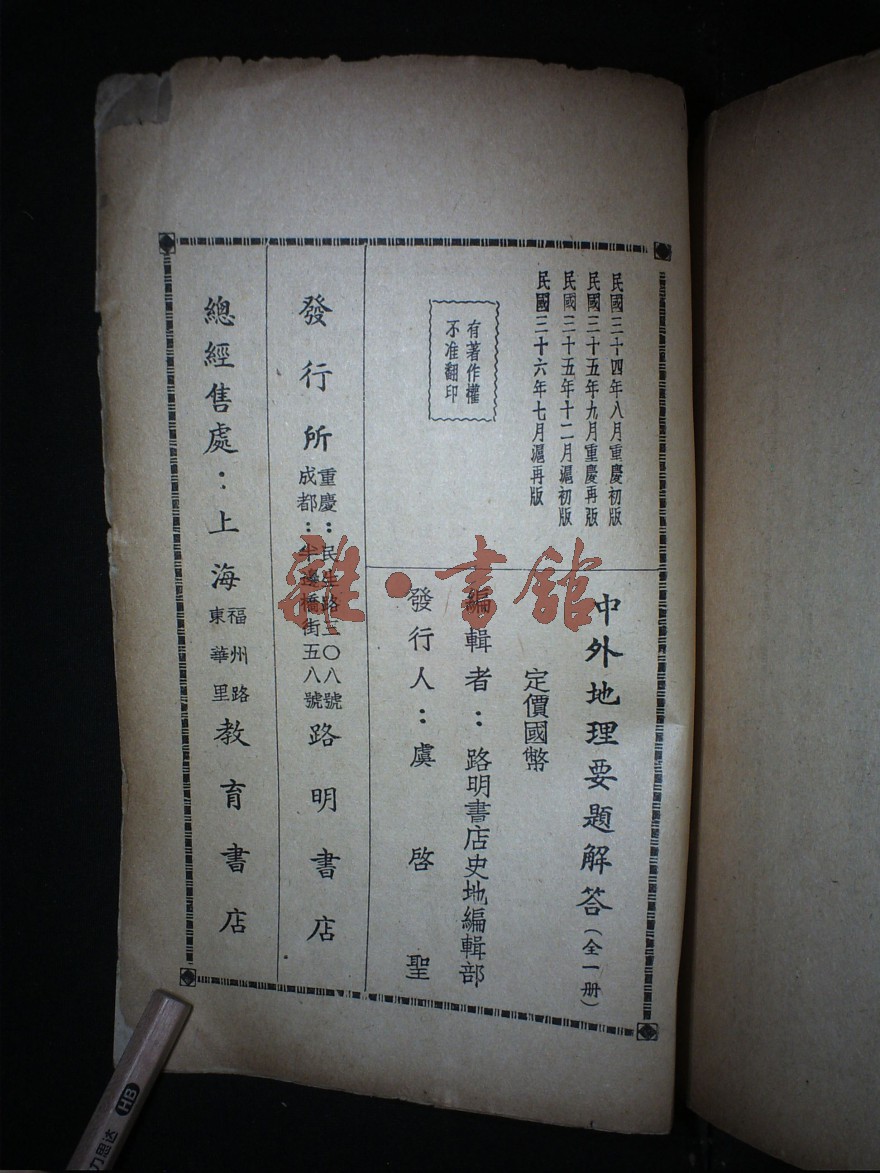 民國三十四年八月重慶初版
民國三十五年九月重慶再版
民國三十五年十二月滬初版
民國三十六年七月滬再版
有著作權
不准翻印
中外地理要題解答(全一册)
定價國幣
編輯者:路明書店史地編輯部
發行人:虞啓聖
發行所
重慶:民生路三〇八號
成都:半邊橋街五八號
路明書店
總經售處:上海
福州路
東華里
教育書店
雜·書館
HB